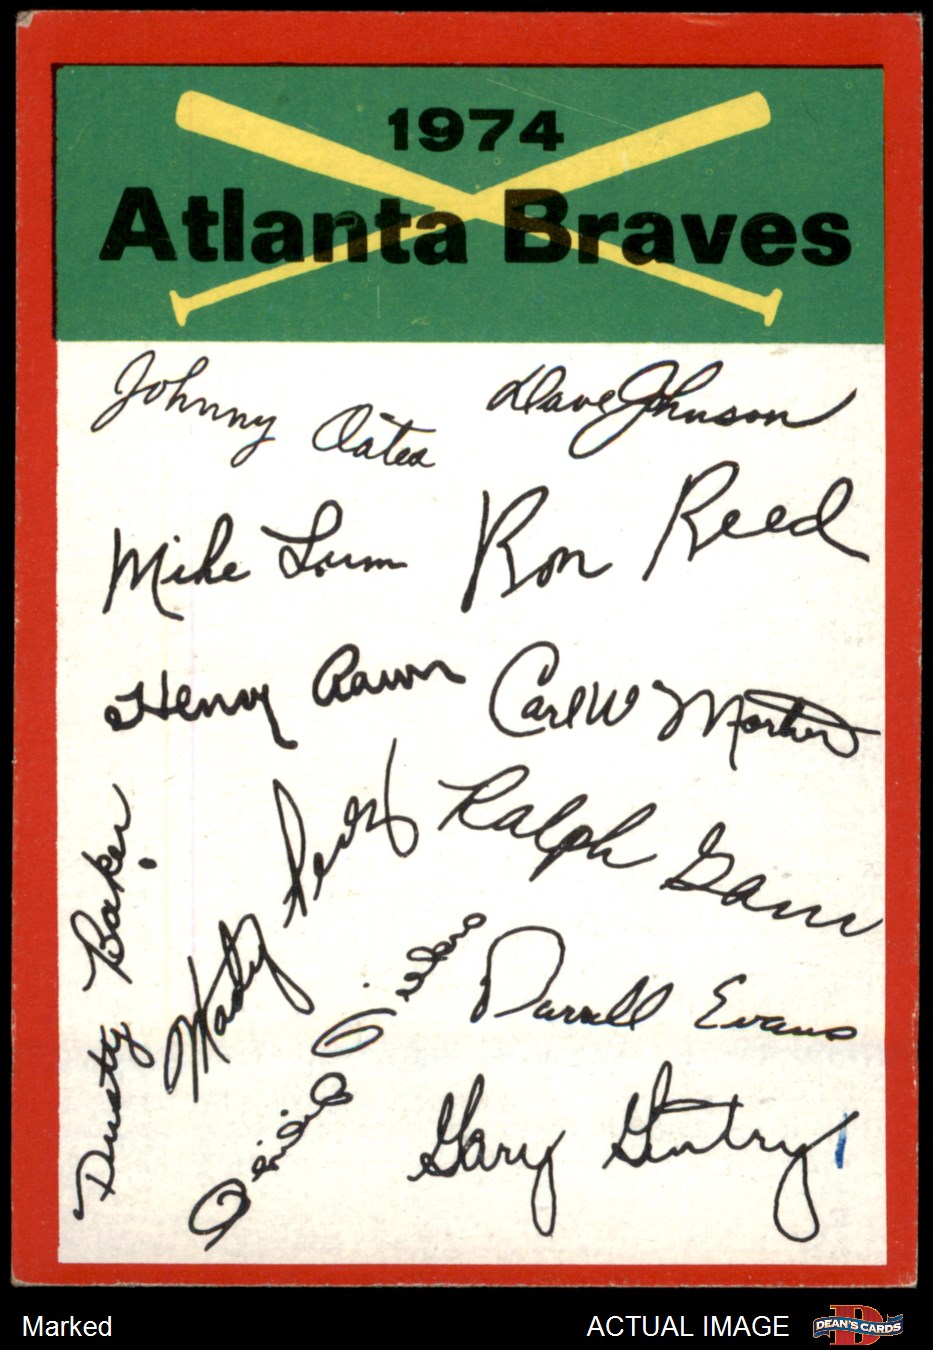 1974
Atlanta Braves
Johnny Oates
Dave Johnson
Mike Lum
Ron Reed
Henry Aaron
Carl W Morton
Dusty Baker
Marty Perez
Ralph Garr
Darrell Evans
Gary Gentry
Marked
ACTUAL IMAGE
DEAN'S CARDS